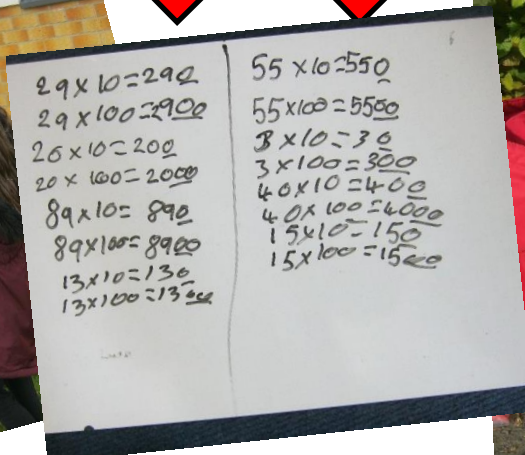 29 x 10 = 290
29 x 100 = 2900
20 x 10 = 200
20 x 100 = 2000
89 x 10 = 890
89 x 100 = 8900
13 x 10 = 130
13 x 100 = 1300
55 x 10 = 550
55 x 100 = 5500
3 x 10 = 30
3 x 100 = 300
40 x 10 = 400
40 x 100 = 4000
15 x 10 = 150
15 x 100 = 1500